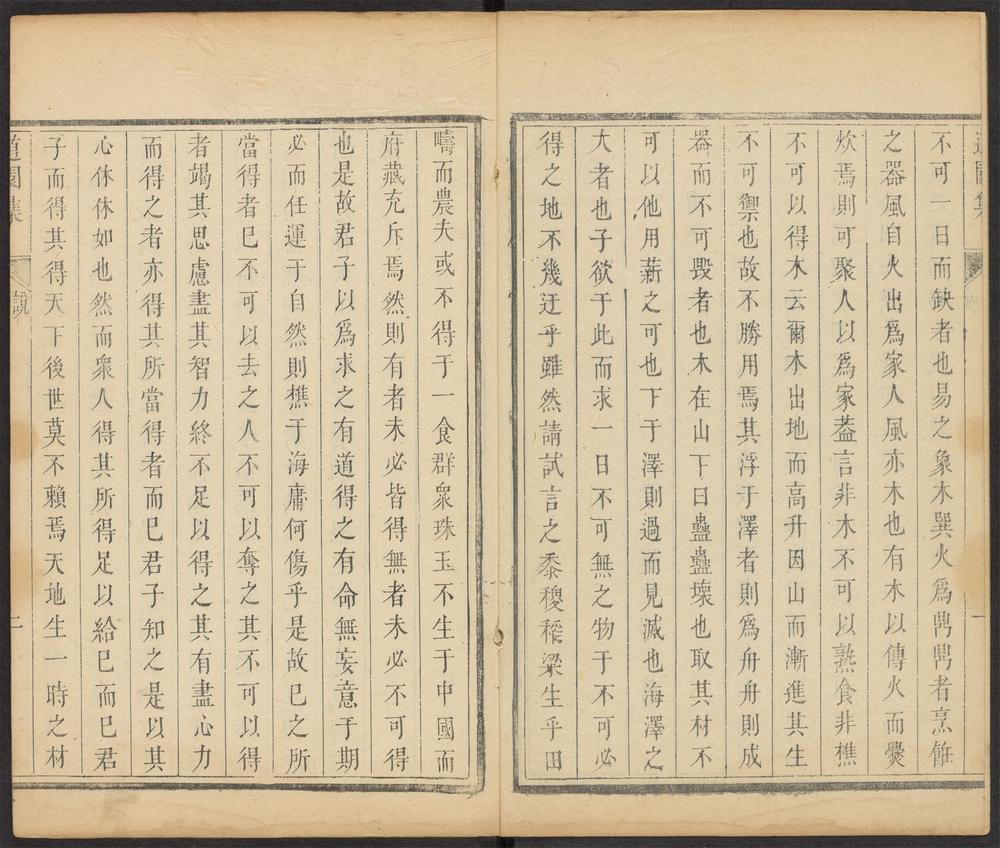 道園集
一
不可一日而缺者也易之象木巽火爲鼎鼎者烹飪
之器風自火出爲家人風亦木也有木以傳火而爨
炊焉則可聚人以爲家葢言非木不可以熟食非樵
不可以得木云爾木出地而高升因山而漸進其生
不可禦也故不勝用焉其浮于澤者則爲舟舟則成
器而不可毀者也木在山下曰蠱蠱壞也取其材不
可以他用薪之可也下于澤則過而見滅也海澤之
大者也子欲于此而求一日不可無之物于不可必
得之地不幾迂乎雖然請試言之黍稷稻粱生乎田
疇而農夫或不得于一食群衆珠玉不生于中國而
府藏充斥焉然則有者未必皆得無者未必不可得
也是故君子以爲求之有道得之有命無妄意于期
必而任運于自然則樵于海庸何傷乎是故已之所
當得者已不可以去之人不可以奪之其不可以得
者竭其思慮盡其智力終不足以得之其有盡心力
而得之者亦得其所當得者而已君子知之是以其
心休休如也然而衆人得其所得足以給已而已君
子而得其得天下後世莫不賴焉天地生一時之材
道園集
說
二